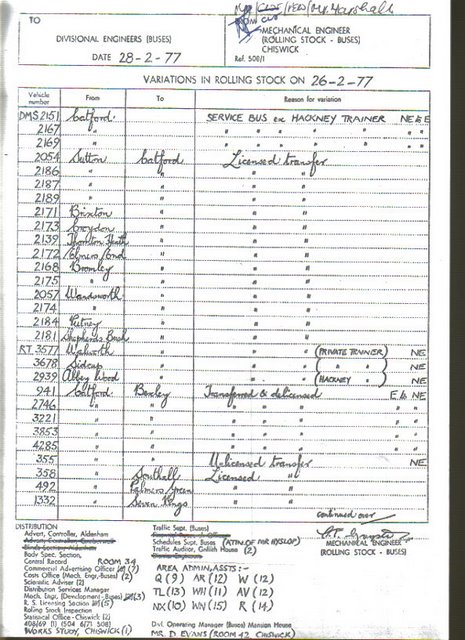 MR/ /MR/Mr. Marshall
TO
FROM
DIVISIONAL ENGINEERS (BUSES)
MECHANICAL ENGINEER
(ROLLING STOCK - BUSES)
CHISWICK
DATE 28-2-77
Ref. 500/1
VARIATIONS IN ROLLING STOCK ON 26-2-77
Vehicle number From To Reason for variation
DMS 2151 Catford. SERVICE BUS ex HACKNEY TRAINER NE & E
2167 " " " " " " " "
2169 " " " " " " " "
2054 Sutton Catford Licensed transfer
2186 " " " "
2187 " " " "
2189 " " " "
2171 Brixton " " "
2173 Croydon " " "
2139 Thornton Heath " " "
2172 Elmers End " " "
2168 Bromley " " "
2175 " " " "
2057 Wandsworth " " "
2174 " " " "
2184 Putney " " "
2181 Shepherds Bush " " "
RT 3577 Walworth " " " (PRIVATE TRAINER) NE
3678 Sidcup " " " ( " " ) NE
2939 Abbey Wood " " " (HACKNEY " ) NE
941 Catford Bexley Transferred & delicensed E to NE
2746 " " " " " "
3221 " " " " " "
3853 " " " " " "
4285 " " " " " "
355 " " Unlicensed transfer NE
358 " Southall Licensed "
492 " Palmers Green " "
1332 " Seven Kings " "
continued over
DISTRIBUTION
Advert. Controller, Aldenham
Body Spec. Section,
Central Record ROOM 34
Commercial Advertising Officer (7)
Costs Office (Mech. Engr-Buses) (2)
Scientific Adviser (2)
Distribution Services Manager
Mech. Engr. (Development - Buses) (3)
R. S. Licensing Section (5)
Rolling Stock Inspection
Statistical Office - Chiswick (2)
108/469 (1) 504 (6/7) 508)
WORKS STUDY, CHISWICK (1)
Traffic Supt. (Buses)
Schedules Supt. Buses (ATTN. OF MR HYSLOP)
Traffic Auditor, Griffith House (2)
AREA ADMIN. ASSTS:-
Q (9) AR (12) W (12)
TL (13) WH (11) AV (12)
NX (10) WN (15) R (14)
Dvl. Operating Manager (Buses) Mansion House
MR. D. EVANS (ROOM 42 CHISWICK)
MECHANICAL ENGINEER
(ROLLING STOCK - BUSES)